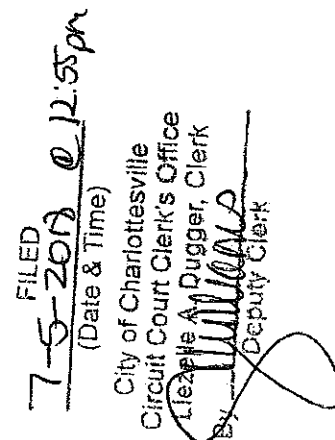 FILED
7-5-2018 @ 12:55pm
(Date & Time)
City of Charlottesville
Circuit Court Clerk's Office
Llezelle A. Dugger, Clerk
By
Deputy Clerk